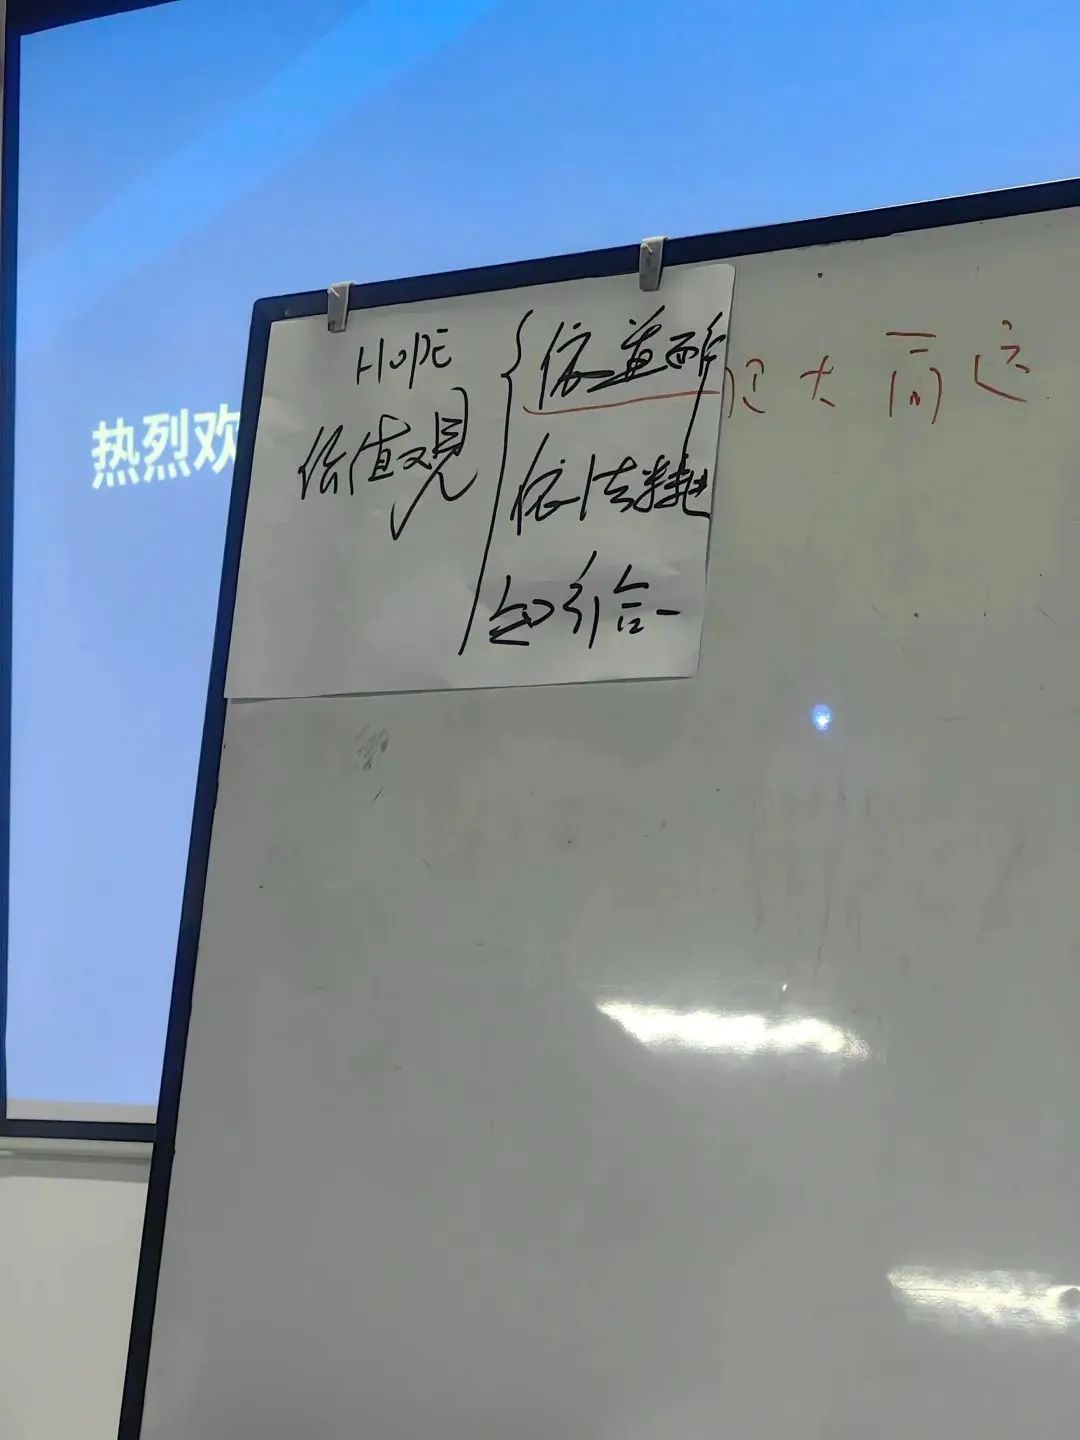 热烈欢
HOPE
价值观
依道而行
大而远
依法耕耘
知行合一